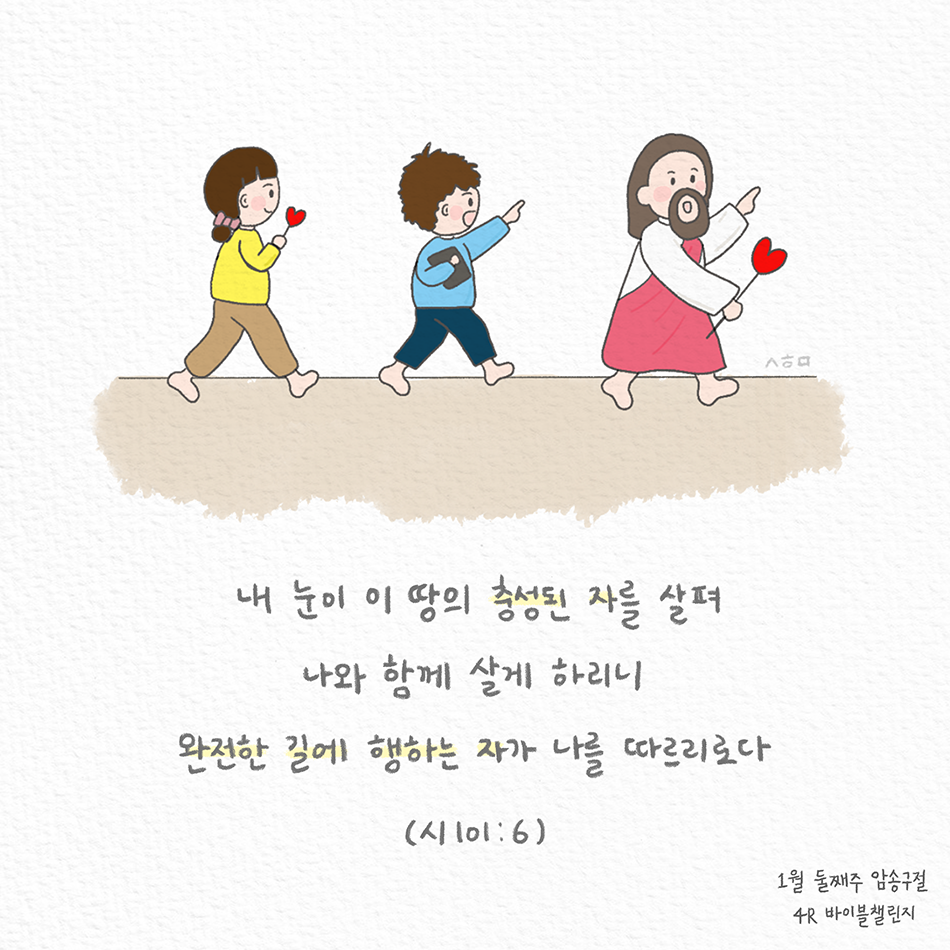 ㅅㅎㅁ
내 눈이 이 땅의 충성된 자를 살펴
나와 함께 살게 하리니
완전한 길에 행하는 자가 나를 따르리로다
(시 101:6)
1월 둘째주 암송구절
4R 바이블챌린지